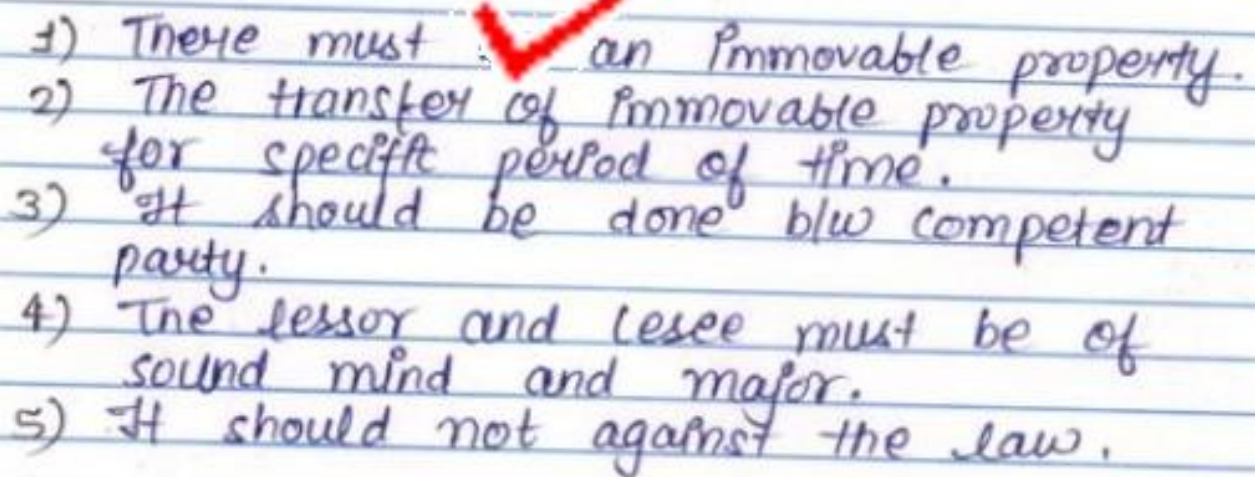 1) There must an immovable property.
2) The transfer of immovable property
for specific period of time.
3) It should be done b/w competent
party.
4) The lessor and lesee must be of
sound mind and major.
5) It should not against the law.